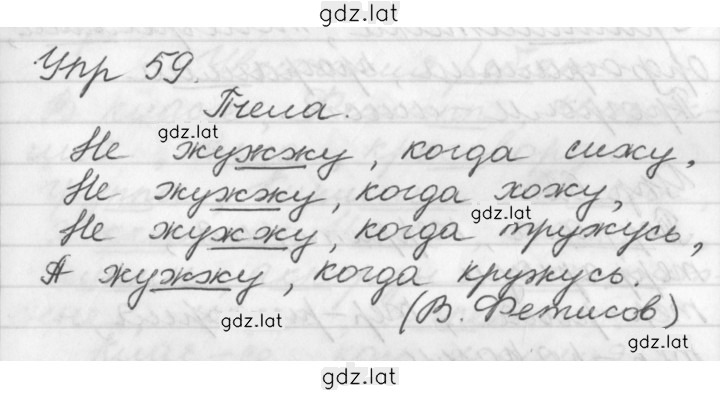 gdz.lat
Упр 59.
Пчела.
gdz.lat
Не жужжу, когда сижу,
Не жужжу, когда хожу,
gdz.lat
Не жужжу, когда тружусь,
А жужжу, когда кружусь.
gdz.lat
(В. Фетисов)
gdz.lat
gdz.lat